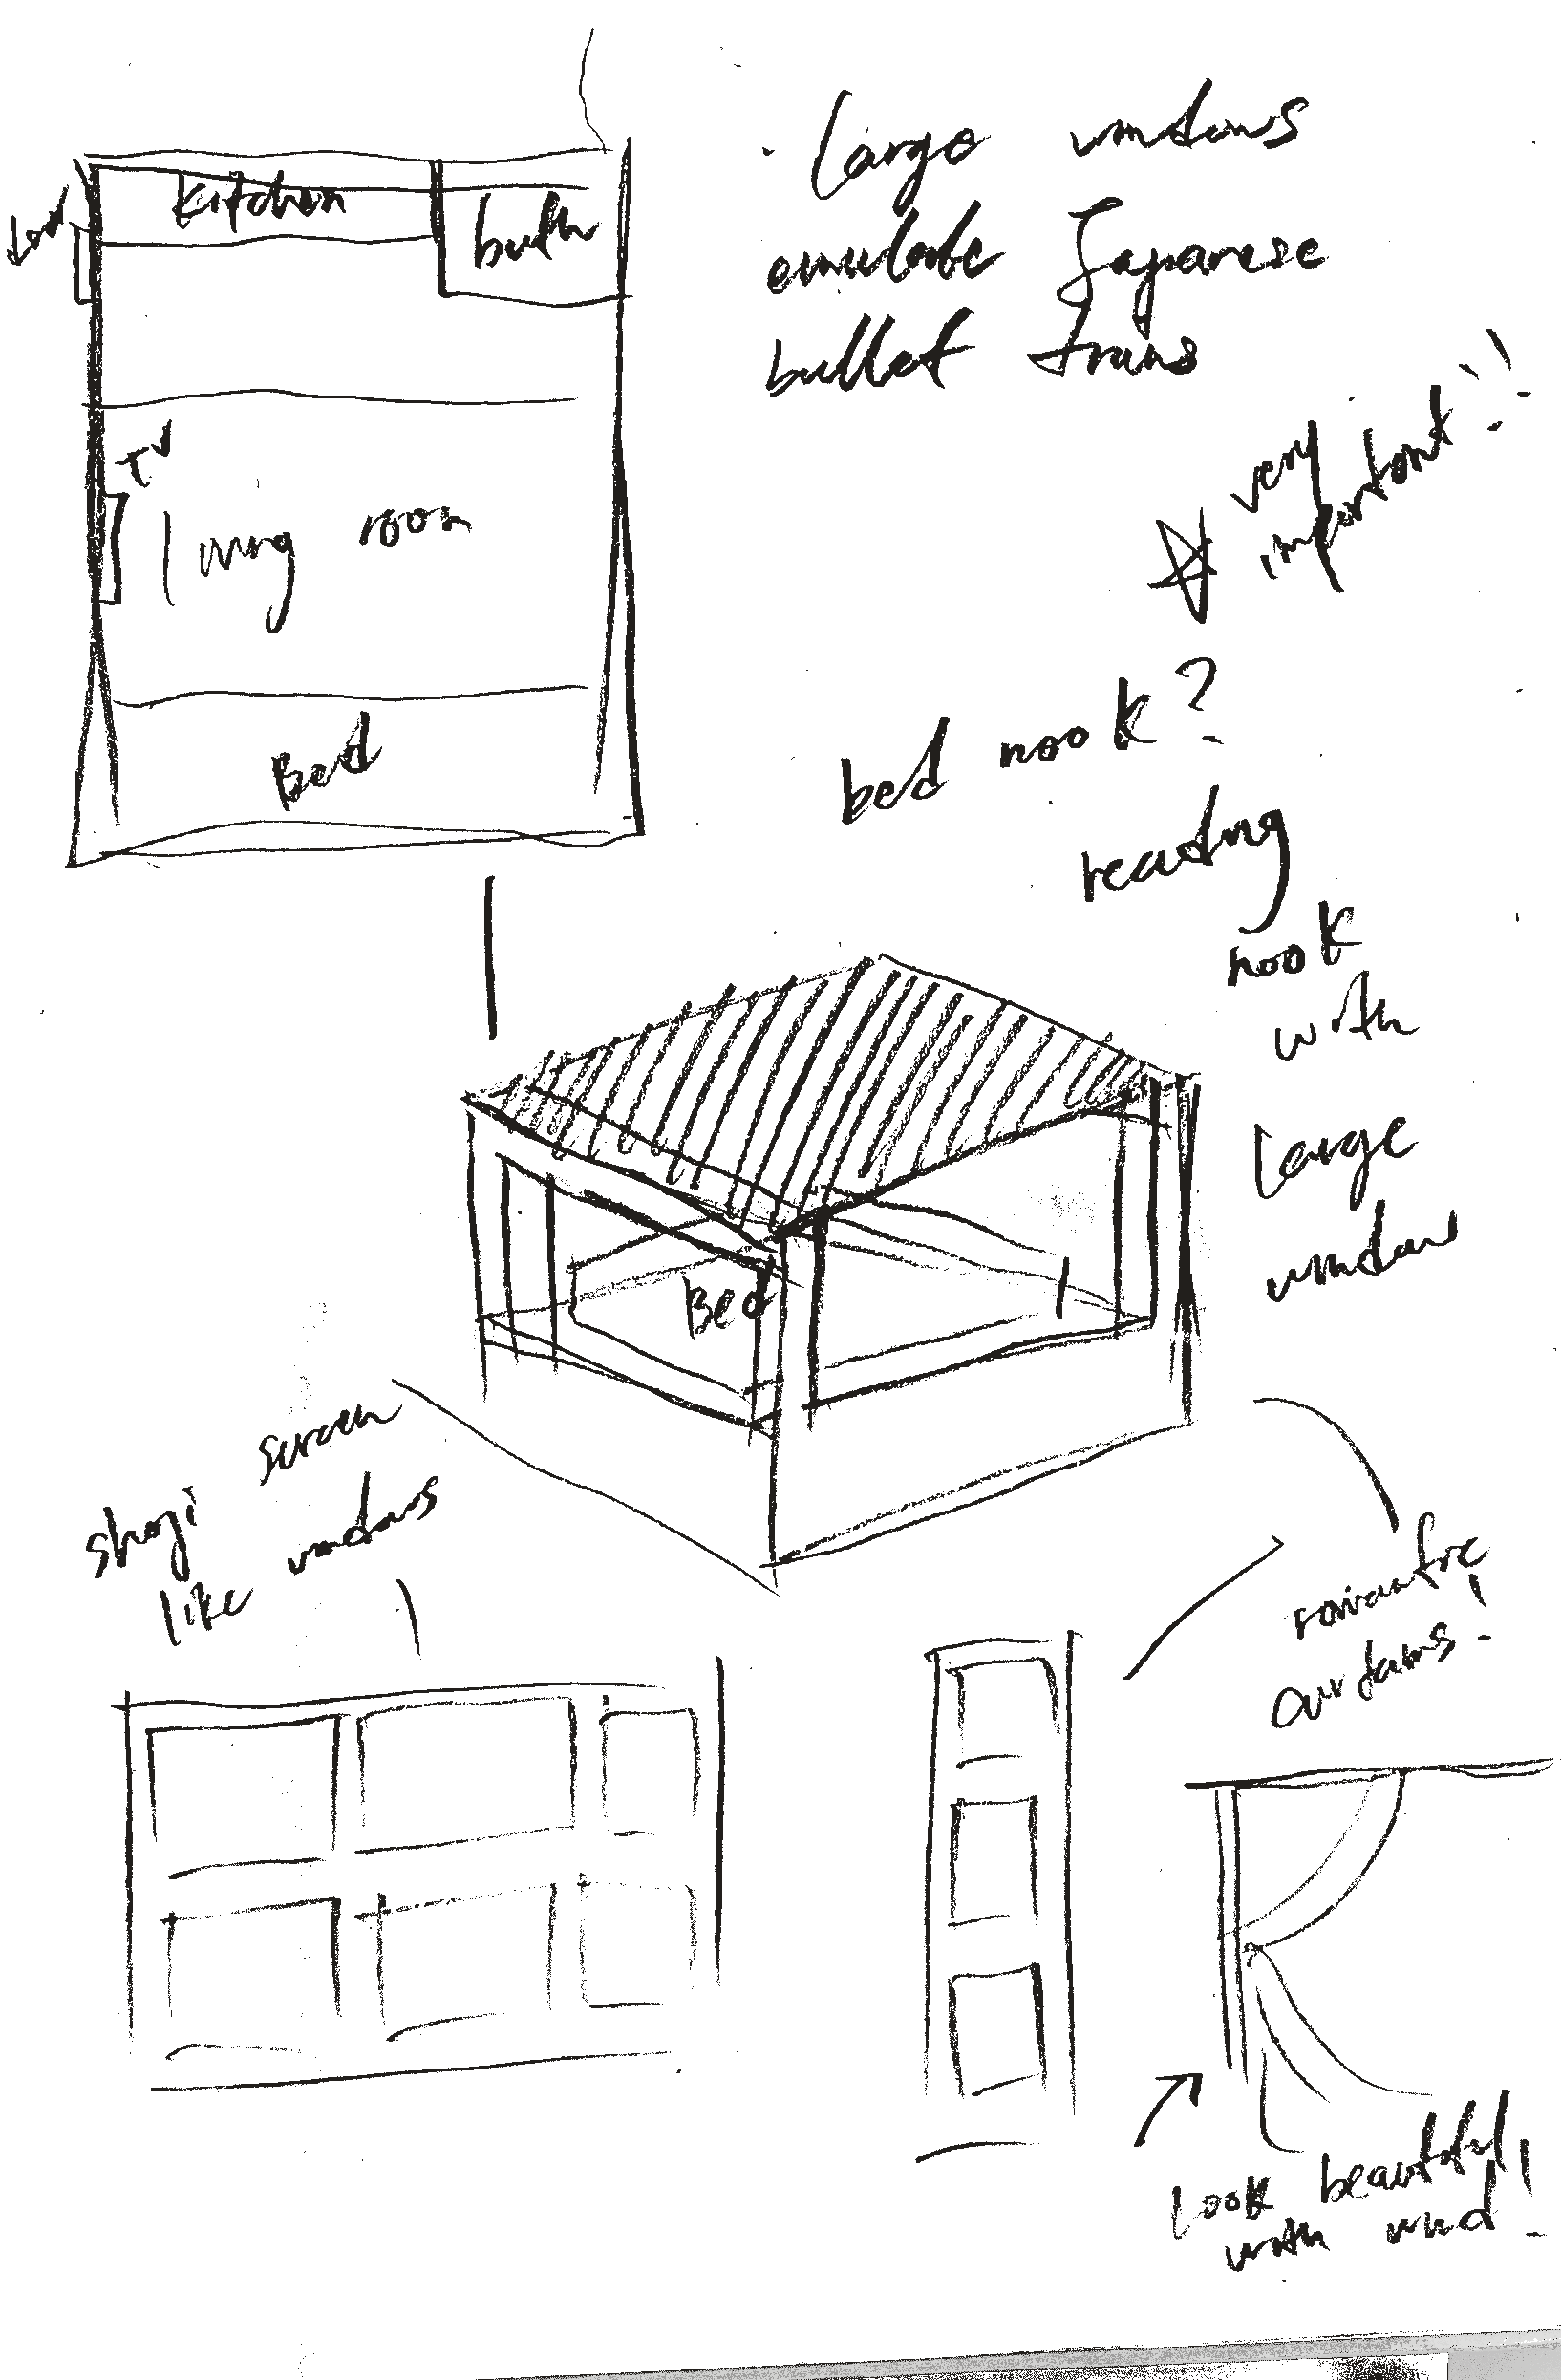 kitchen
bath
TV
living room
Bed
large windows
emulate Japanese
bullet trains
very
important!!
bed nook?
reading
nook
with
large
window
Bed
shoji screen
like windows
romantic
curtains!
look beautiful
with wind!